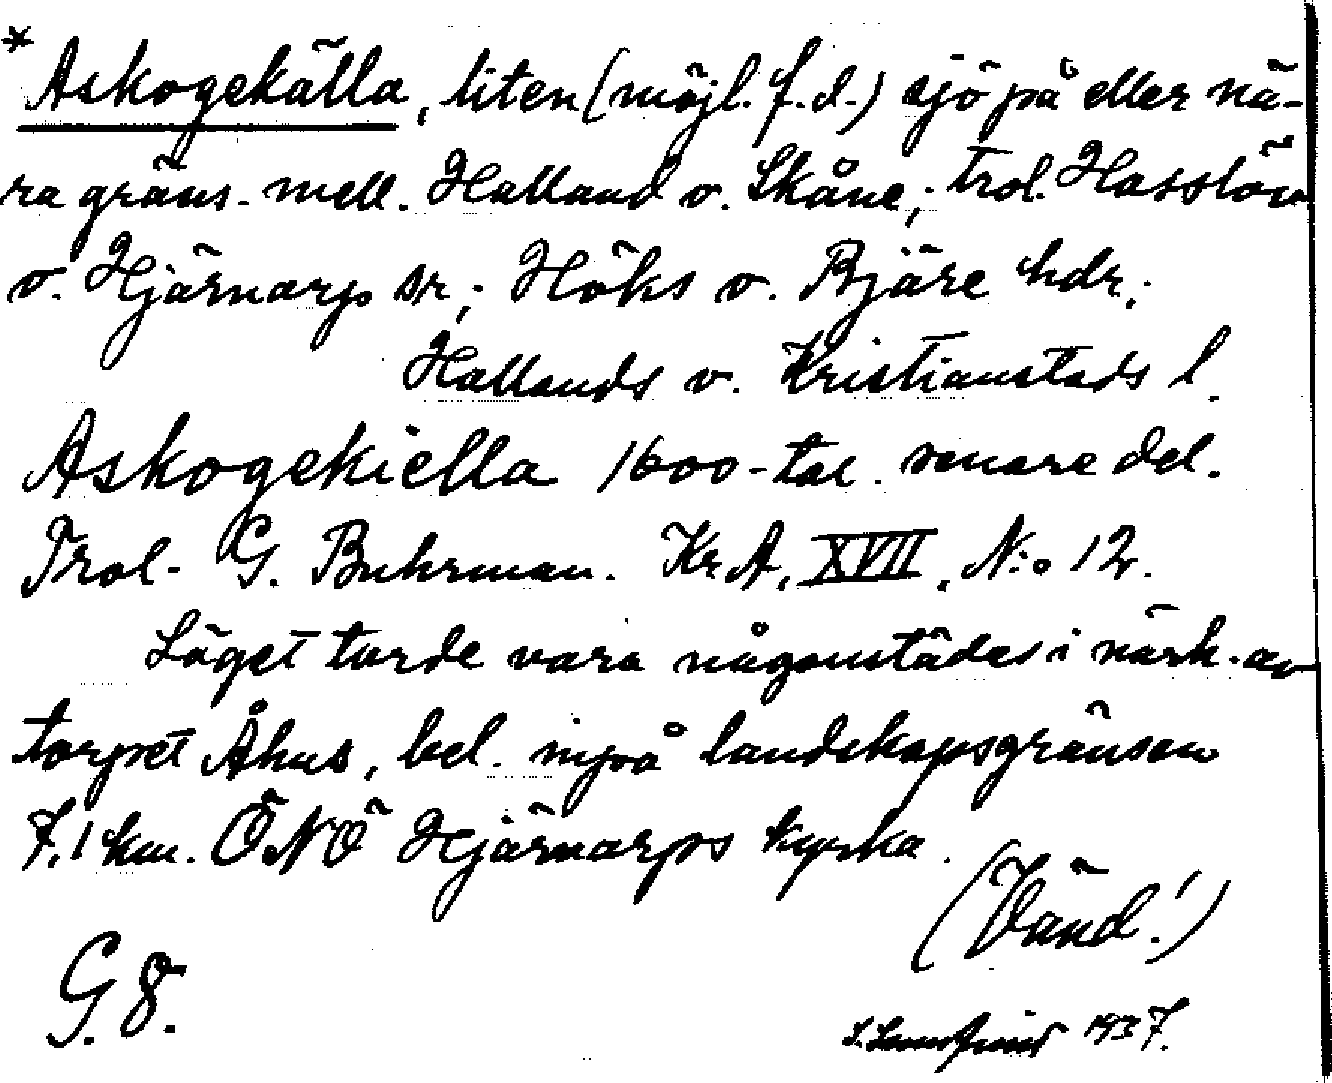 * Askogekälla, liten (möjl. f.d.) sjö på eller nä-
ra gräns. mell. Halland o. Skåne; trol. Hasslöv
o. Hjärnarp sn; Höks o. Bjäre hdr;
Hallands o. Kristianstads l.
Askogekiella 1600-tal. senare del.
Trol. G. Buhrman. KrA, XVII, N:o 12.
Läget torde vara någonstädes i närh. av
torpet Åhus, bel. inpå landskapsgränsen
7,1 km. ÖNÖ Hjärnarps kyrka.
(Vänd!)
G. 8.
1937.